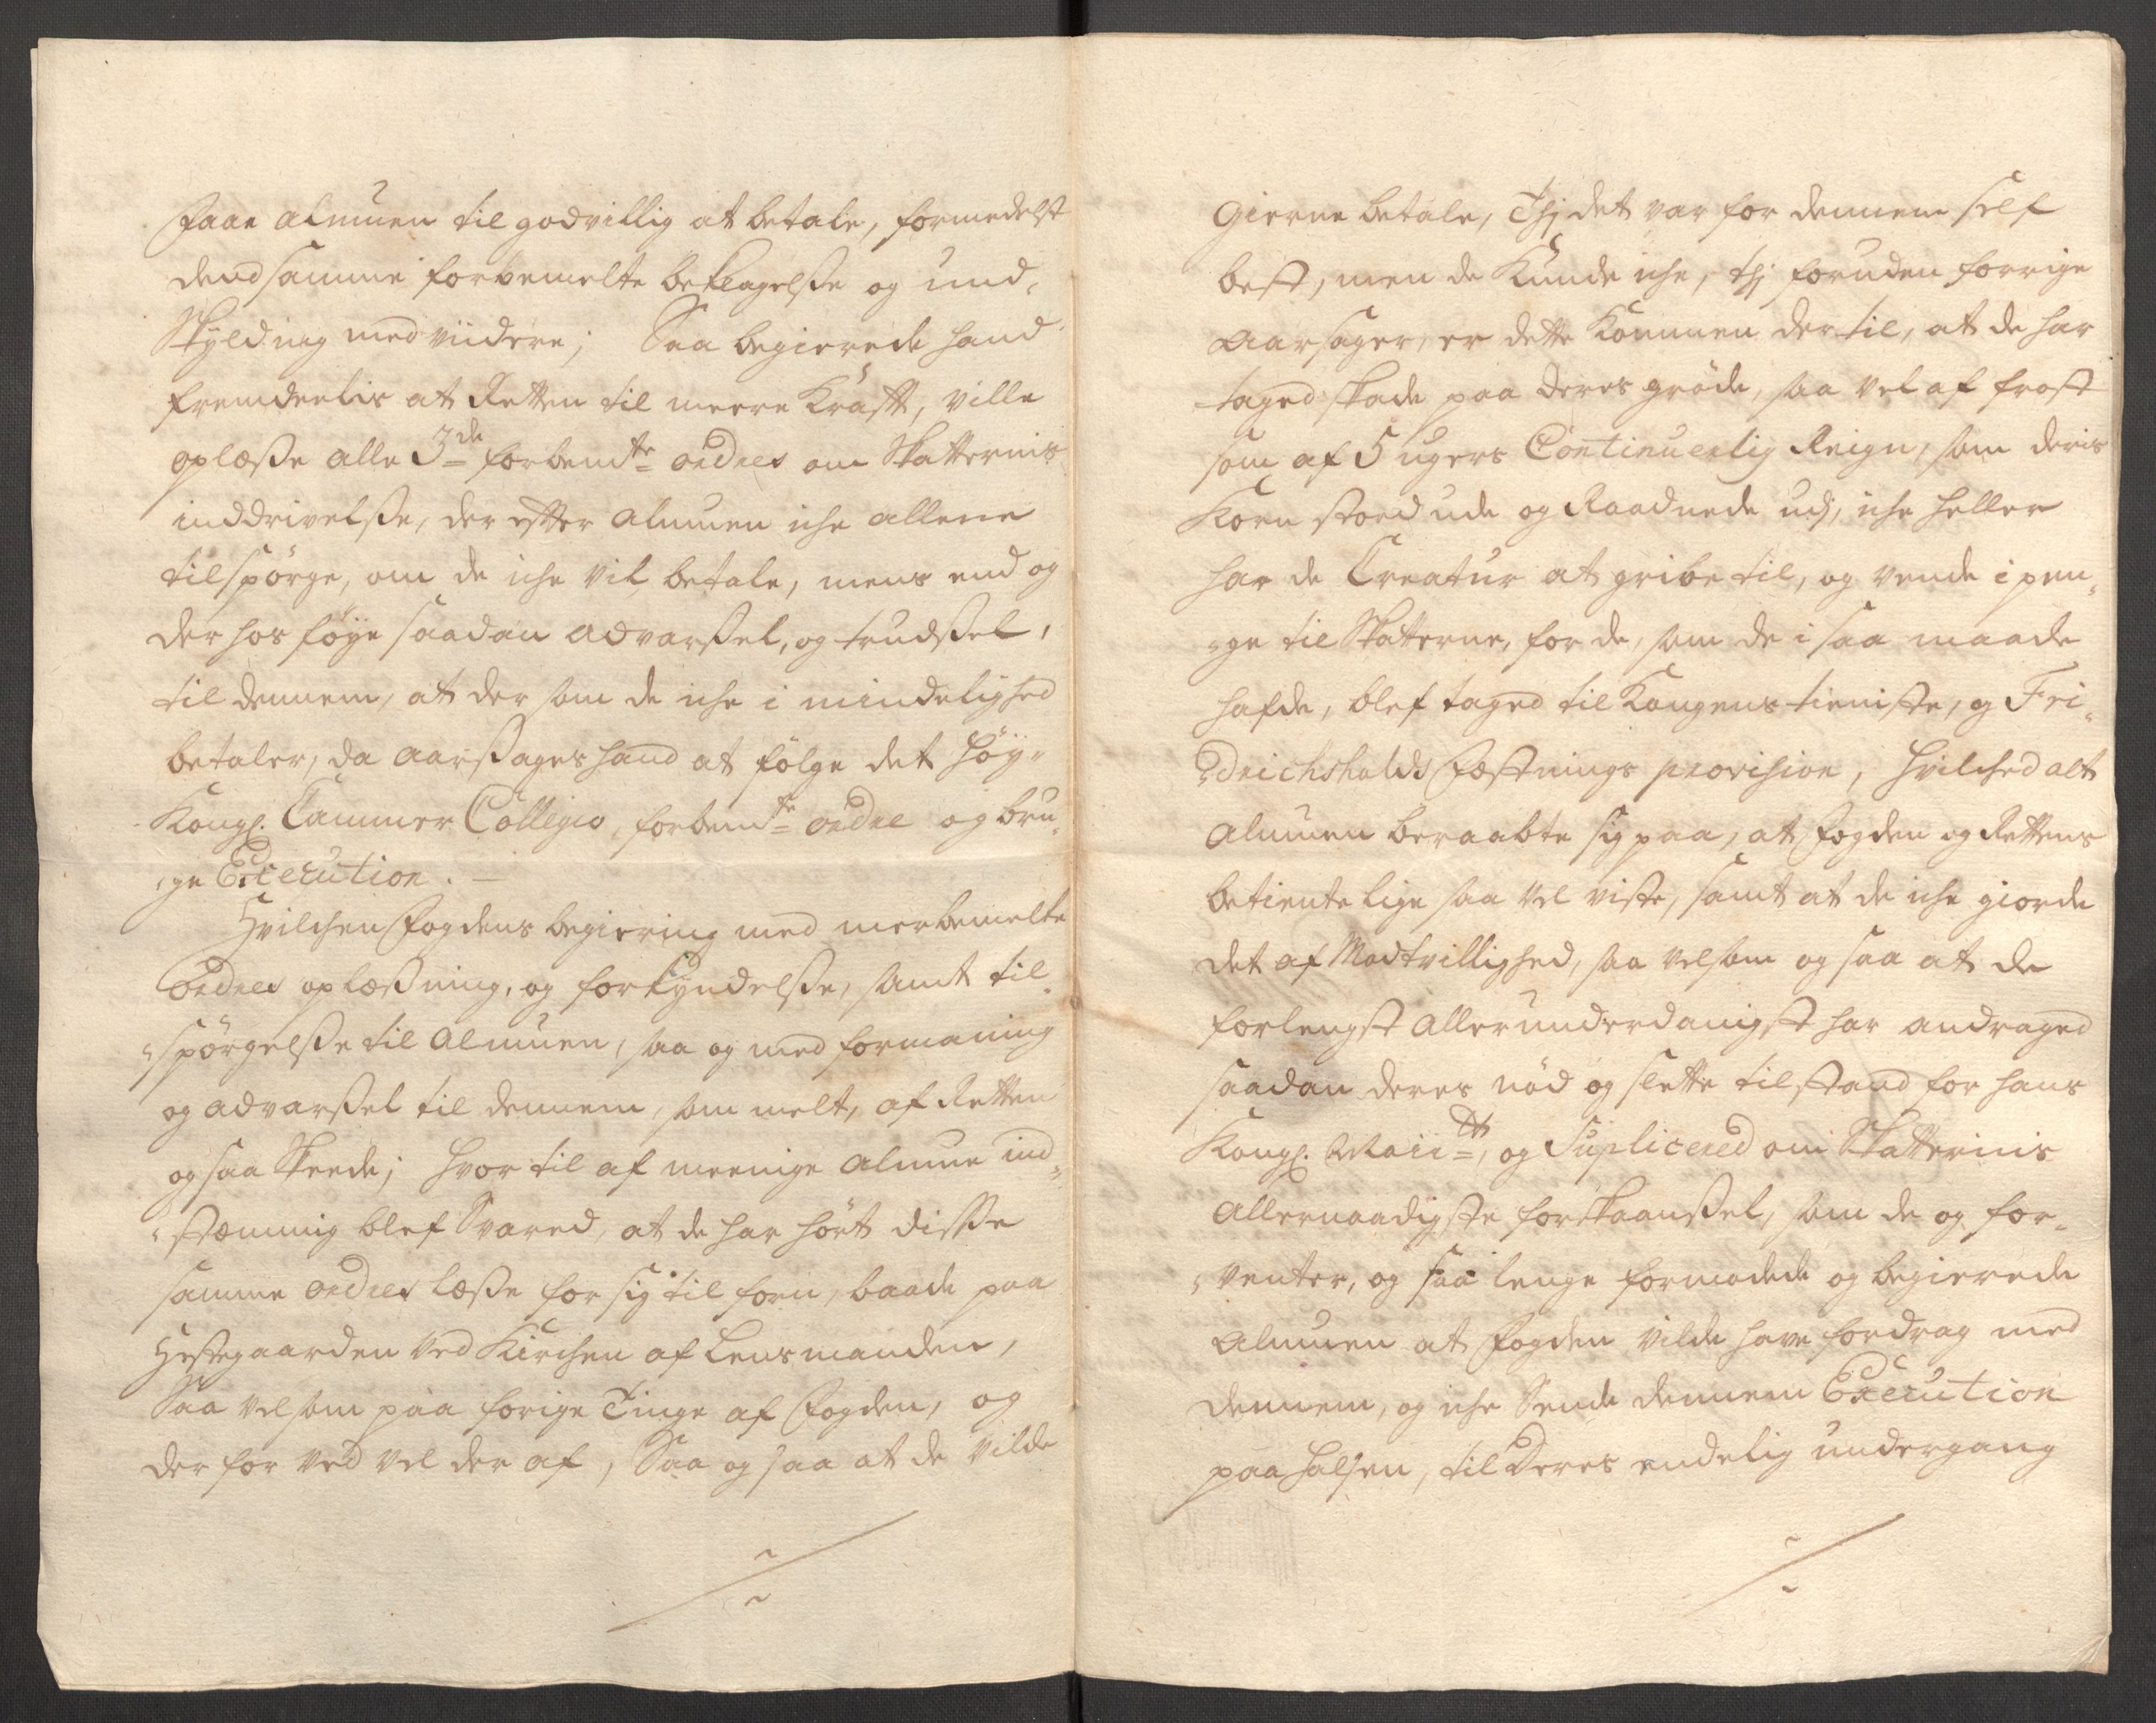 faae almuen til godvillig at betale, formedelst
dend samme forbemelte beklagelsse og und,,
skylding med viidere; Saa begierede hand
fremdeelis at Retten til meere Kraft, ville
oplæsse alle 3de forbemte ordres om Skatternis
inddrivelsse, der efter almuen iche allene
tilspörge, om de iche vil betale, mens end og
der hos föye saadan advarssel, og trudssel,
til dennem, at der som de iche i mindelighed
betaler, da aarssages hand at fölge det höy,,
Kongl. Cammer Collegio, forbemte ordre og bru,,
,,ge Execution. —
Hvilchen fogdens begiering med meerbemelte
ordres oplæssning, og forkyndelsse, samt til,,
,,spörgelsse til almuen, saa og med formaning
og advarssel til dennem, som melt, af Retten
og saa skeede; hvor til af meenige almue ind,,
,,stæmmig blef Svared, at de har hört disse
samme ordres læsse for sig til forn, baade paa
Hestegaarden ved Kirchen af Lensmanden,
Saa vel som paa forige Tinge af fogden, og
der for ved vel der af, Saa og saa at de vilde
gierne betale, Thj det var for dennem self
best, men de kunde iche, thj foruden forrige
aarsager, er dette kommen der til, at de har
taged skade paa deres gröde, saa vel af frost
som af 5 ugers Continuerlig Reign, som deris
Korn stoed ude og Raadnede udj, iche heller
har de Creatur at gribe til, og vende i pen,,
,,ge til Skatterne, for de, som de i saa maade
hafde, blef taged til Kongens tieniste, og Fri,,
,,drichshalds fæstnings provision, hvilched alt
almuen beraabte sig paa, at fogden og Rettens
betiente lige saa vel viste, samt at de iche giorde
det af Modtvillighed, saa velsom og saa at de
forlengst allerunderdanigst har andraged
saadan deres nöd og slette tilstand for hans
Kongl. Maiits, og Suplicered om Skatternis
allernaadigste forskaanssel, som de og for,,
,,venter, og saa lenge formodede og begierede
almuen at fogden vilde have fordrag med
dennem, og iche Sende dennem Execution
paa halsen, til deres endelig undergang